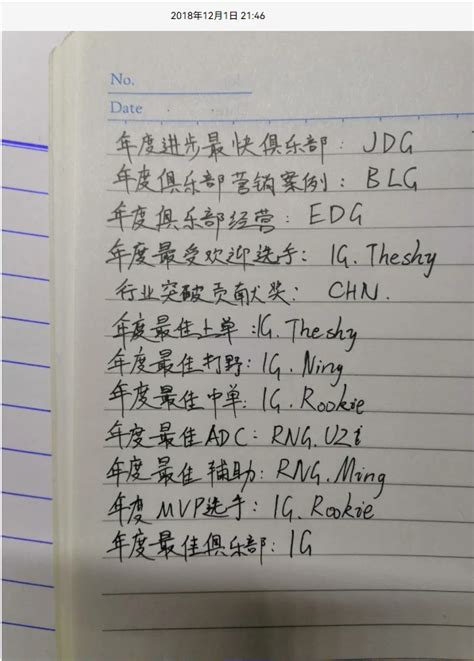 2018年12月1日 21:46
No.
Date
年度进步最快俱乐部：JDG
年度俱乐部营销案例：BLG
年度俱乐部经营：EDG
年度最受欢迎选手：IG.Theshy
行业突破贡献奖：CHN.
年度最佳上单：IG.Theshy
年度最佳打野：IG.Ning
年度最佳中单：IG.Rookie
年度最佳ADC：RNG.UZi
年度最佳辅助：RNG.Ming
年度MVP选手：IG.Rookie
年度最佳俱乐部：IG